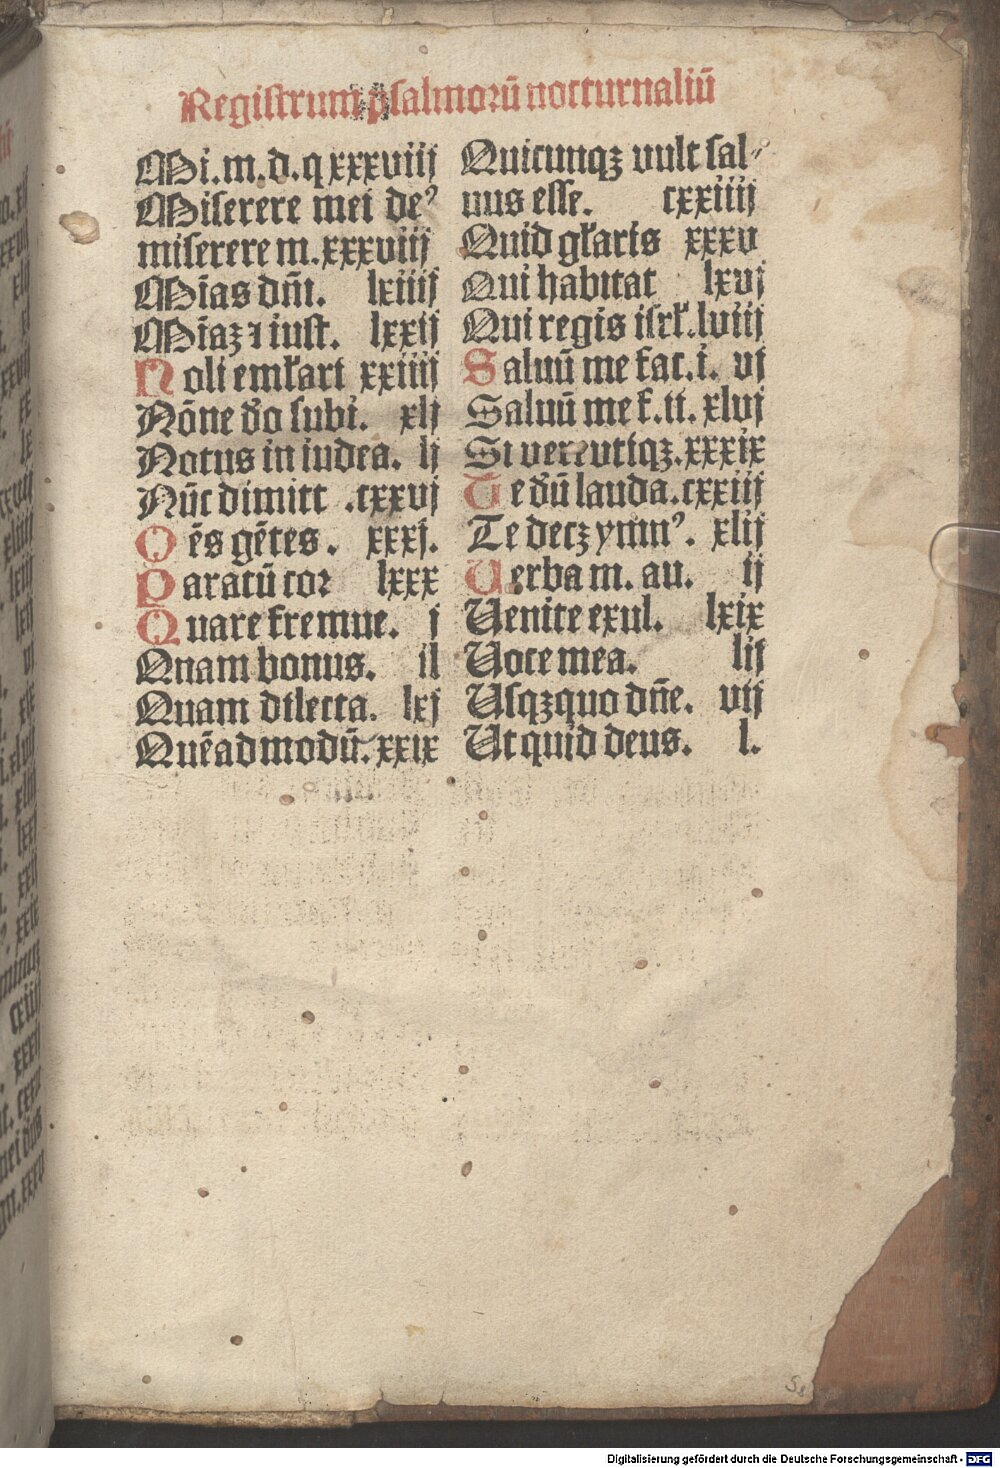 Registrum psalmorū nocturnaliū
Mi.m.d.q xxxviij
Miserere mei deꝰ
miserere m.xxxviij
Mīas dn̄i. lxiiij
Mīaz ⁊ iust. lxxij
Noli emƚari xxiiij
Nōne do subi. xlj
Notus in iudea. lj
Nūc dimitt .cxxvj
Oēs gētes. xxxj.
Paratū coꝛ lxxx
Quare fremue. j
Quam bonus. il
Quam dilecta. lxj
Quēadmodū.xxix
Quicunqꝫ vult sal⸗
uus esse. cxxiiij
Quid gƚaris xxxv
Qui habitat lxvj
Qui regis isrƚ.lviij
Saluū me fac.i. vj
Saluū me f.ii. xlvj
Si vere vtiqꝫ.xxxix
Te deū lauda.cxxiij
Te decꝫ ymnꝰ. xlij
Uerba m. au. ij
Uenite exul. lxix
Uoce mea. lij
Usqꝫquo dn̄e. vij
Ut quid deus. l.
Digitalisierung gefördert durch die Deutsche Forschungsgemeinschaft - DFG